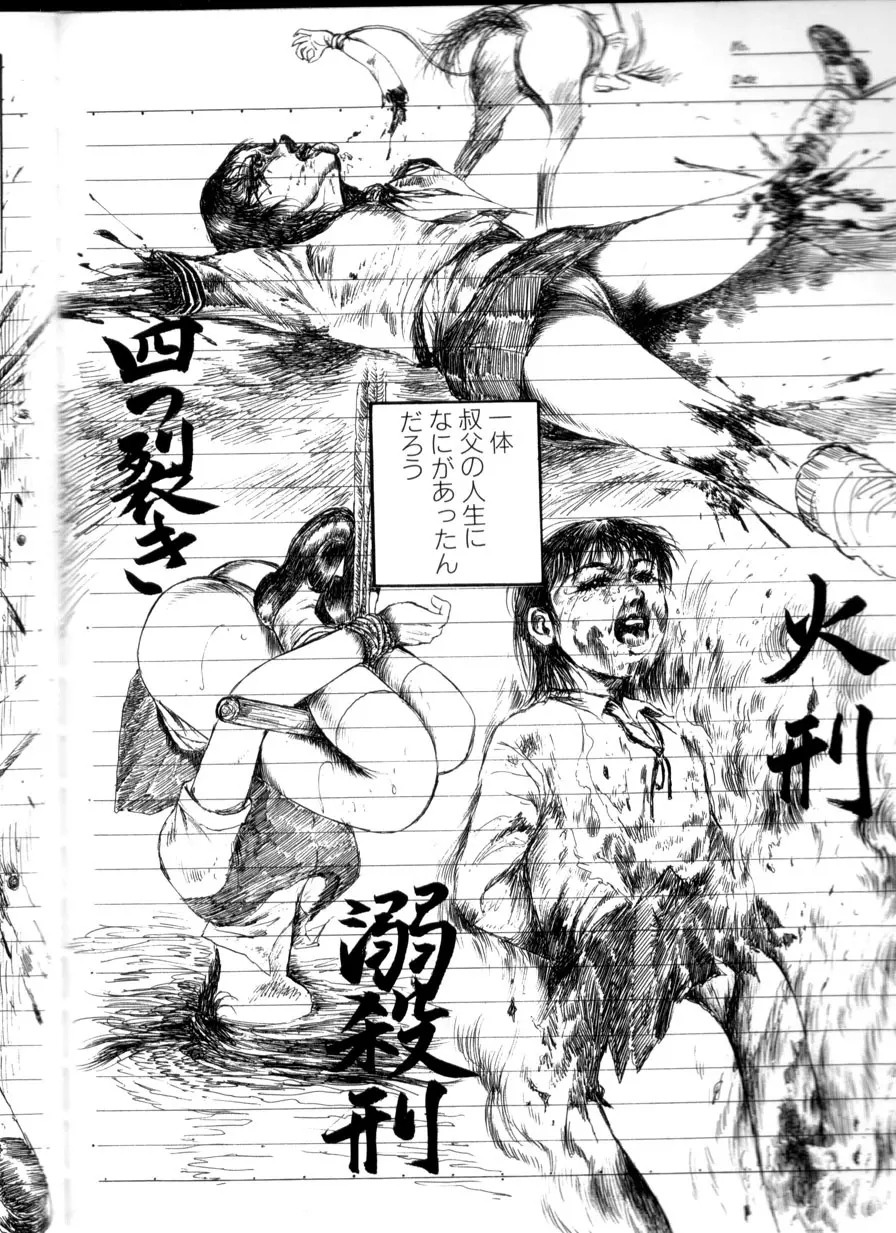 No.
Date
一体
叔父の人生に
なにがあったん
だろう
火刑
四つ裂き
溺殺刑